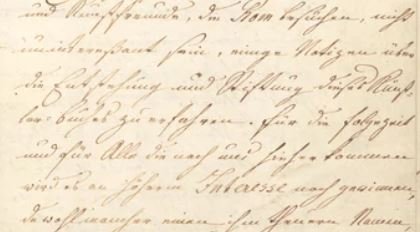 und Kunstfreunde, die Rom besuchen, nicht
uninteressant sein, einige Notizen über
die Entstehung und Stiftung dieses Künst-
ler-buches zu erfahren. Für die Folgezeit
und für Alle die nach uns hieher kommen
wird es an höherm Interesse noch gewinnen,
da wohl mancher einen ihm theuern Namen,